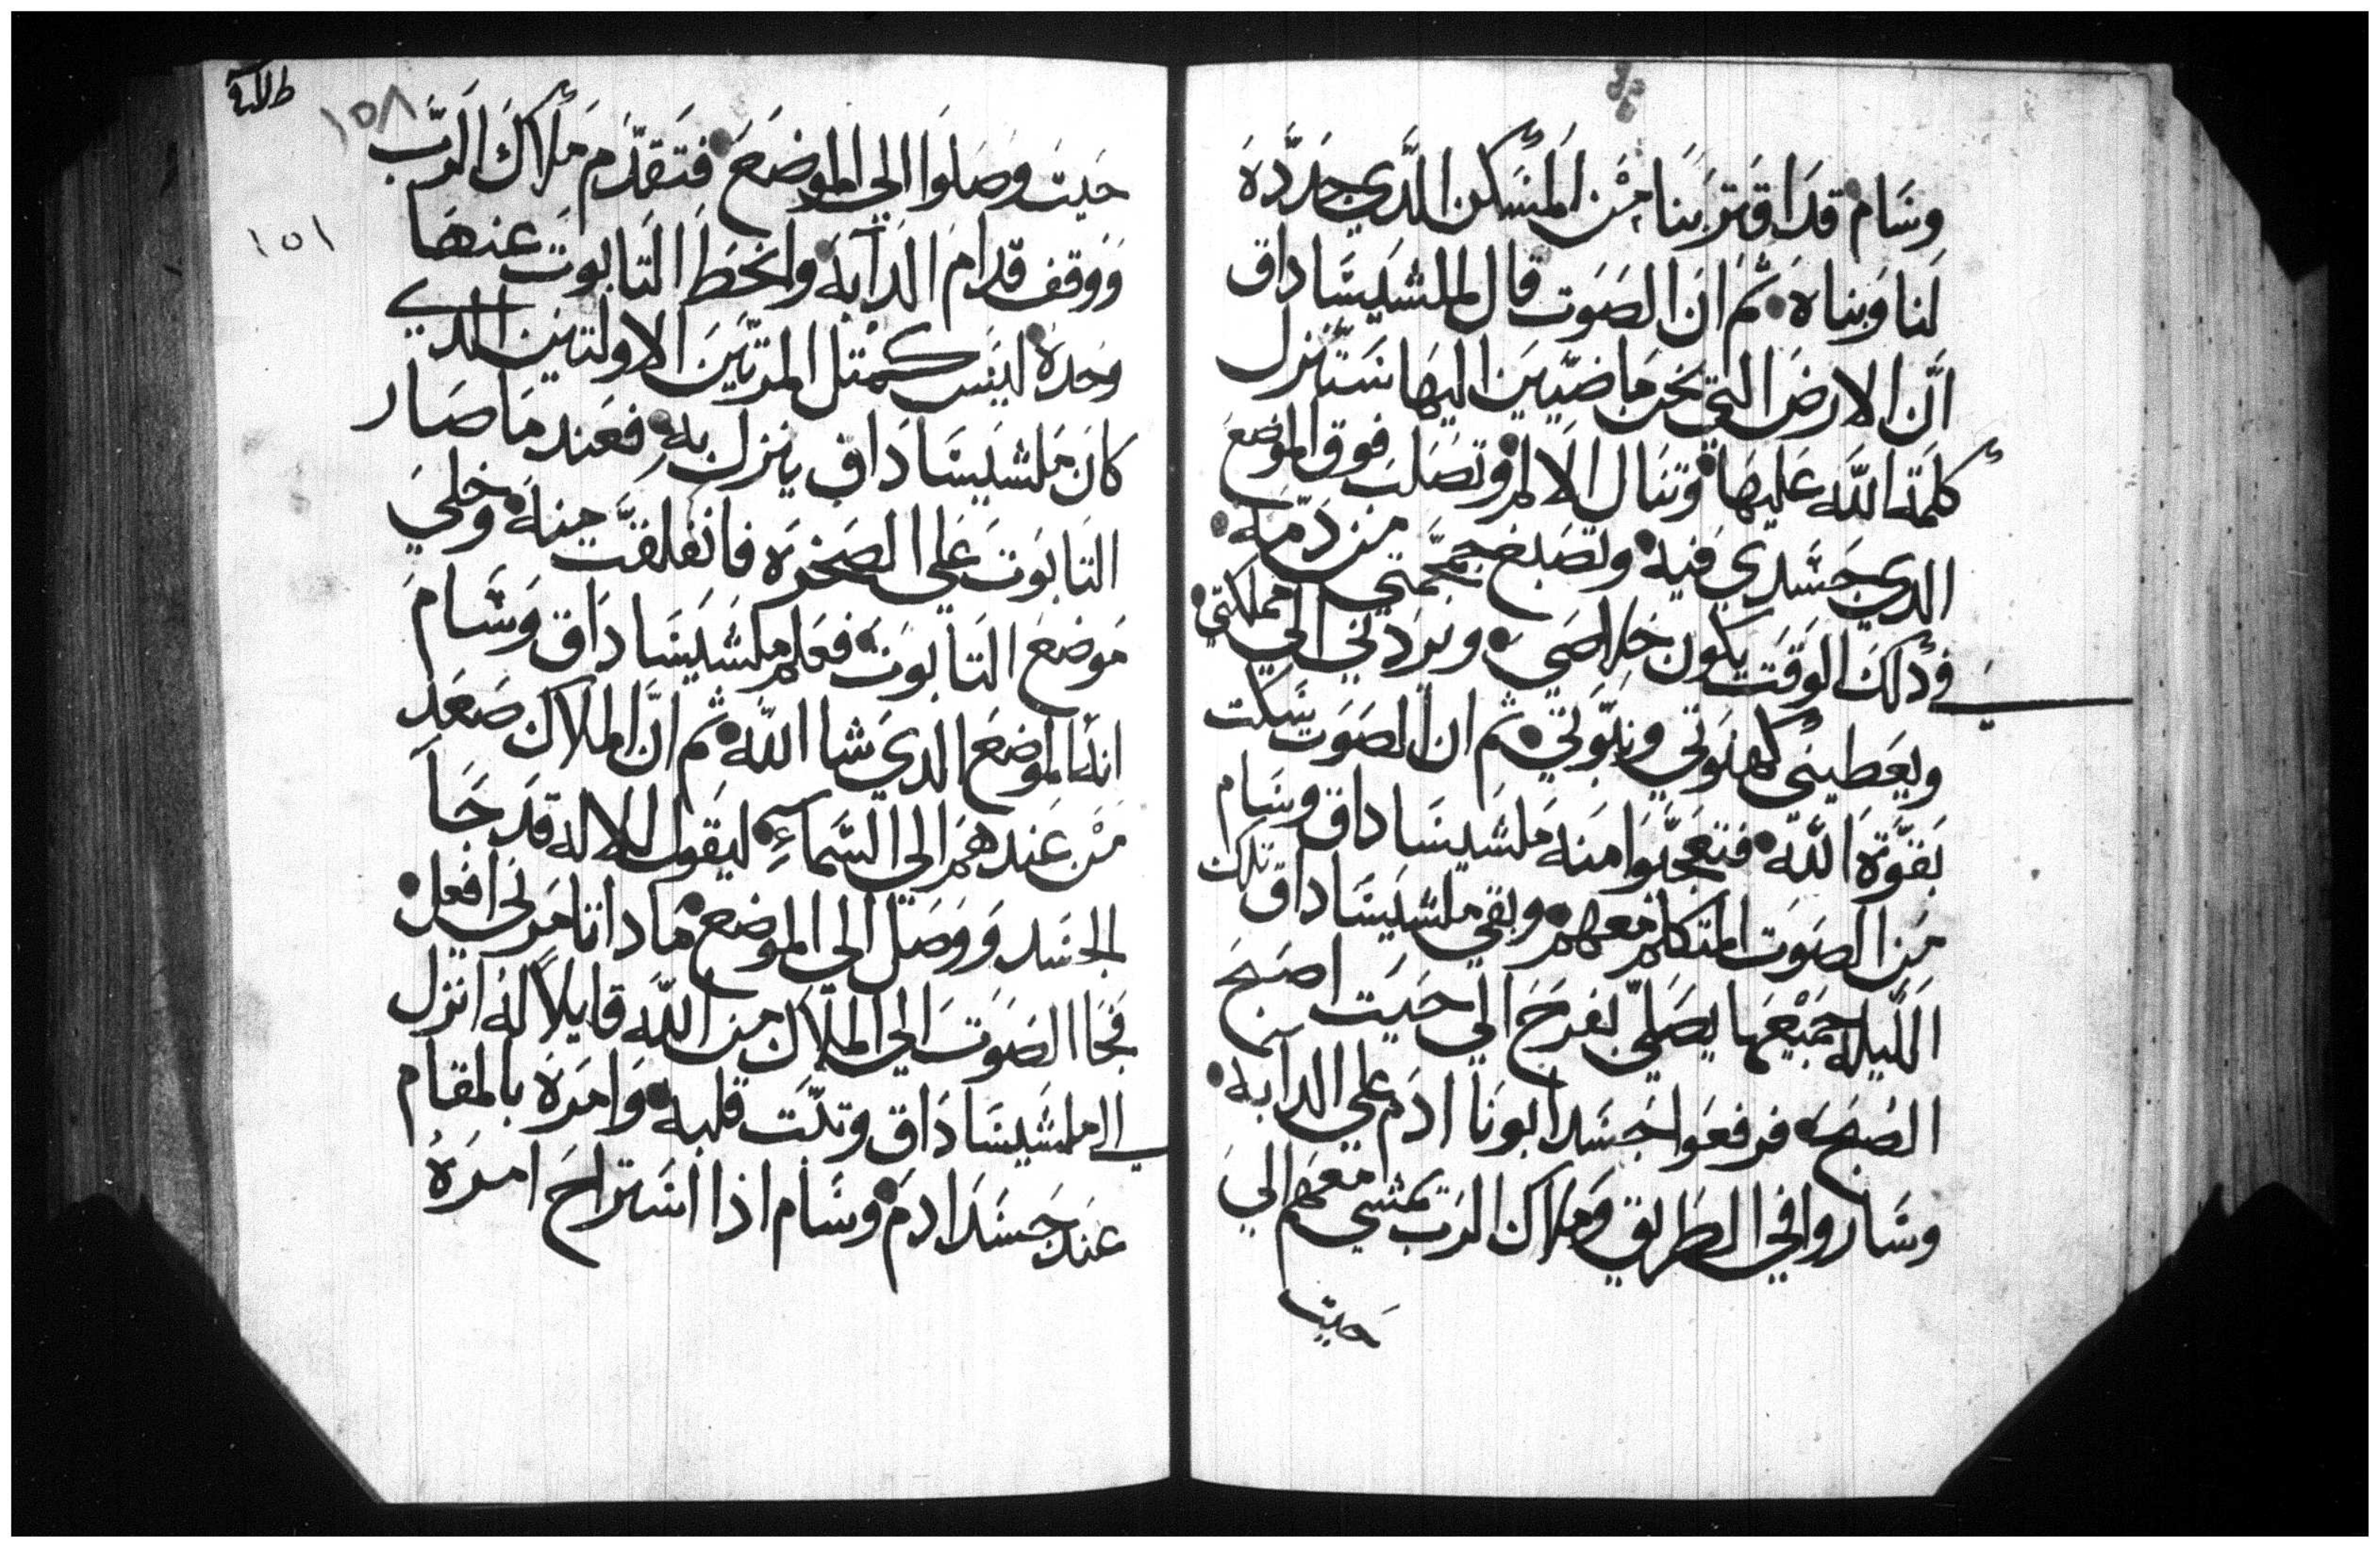 وسَام قدَ اقَترَبنَا مِنْ المَسَكن الذَي حَدَّدهَ
لَنا وَبناه ثمَ انَ الصَوَت قال لملشَيسَاداق
انَّ الارضَ التي نحن مَاضيّيَن اليهَا سَتَنزل
كلمَة اللّه عَليهَا وتنَال الالم وتصَلب فوق الموَضعَ
الدي جَسَدي فيه وتصَبغ جمجمَتي من دَمّه
في دلك الوَقَت يكون خلاصَي ويَردَني الي مملكتي
ويعَطيني كهنوَتي ونبَوَتي ثم ان الصَوَت سَكت
بَقوَّة اللّه فتعَجبَوا منَه مَلشيسَاداق وسَام
مَن الصَوَت المتكلم معَهم وبقي ملشيَسَاداق تلك
اللَيله جَميْعَها يصَلي بفرحَ الي حَيَت اصَبحَ
الصُبحَ فرفعَوا جَسَد ابونَا ادَم علي الدابه
وسَاروا في الطَريق وَملاك الرَب يمَشي معَهم الي
حَيت
طلبة
١٥٨
١٥١
حَيتَ وصَلوَا الي الموضَعَ فتَقدّمَ مَلاكَ الرَبّ
وَوَقف قدامَ الدَآبهَ وانحَطَ التَابوَت عنهَا
وَحَدهَ ليسَ كمْتل المرَتَين الاولتَين الدي
كانَ مَلشيسَادَاق ينزل بهِ فعَند مَا صَار
التَابوَتَ عَلي الصَخرَه فانَفلقتَ منهَ وخلي
مَوضعَ التَابوَتَ فعَلم ملشَيَسَادَاق وَسَامَ
انهَ الموضعَ الدي شا اللّه ثم انَّ الملاك صَعَد
مَنْ عَندهَم الي السَّمآءِ ليقول للاله قدَ جَآ
الجسَد وَوصَل الي الموضع مَادا تامَرني افعَل
فجَا الصَوَت الي الملاك من اللّه قايلاً له انزل
الي ملشَيسَادَاق وتبَت قلبه وَامَرهَ بالمقام
عَند جَسَد ادمَ وسَام اذا استراحَ امرَهُ